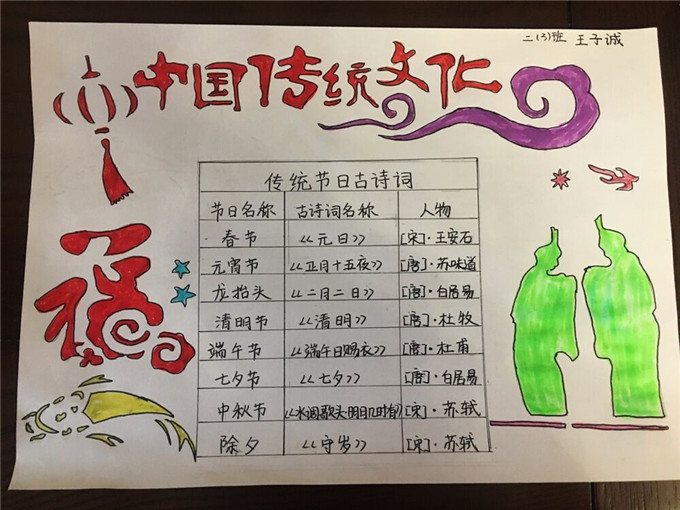 二(3)班 王子诚
中国传统文化
福
传统节日古诗词
节日名称 古诗词名称 人物
春节 《元日》 [宋]·王安石
元宵节 《正月十五夜》 [唐]·苏味道
龙抬头 《二月二日》 [唐]·白居易
清明节 《清明》 [唐]·杜牧
端午节 《端午日赐衣》 [唐]·杜甫
七夕节 《七夕》 [唐]·白居易
中秋节 《水调歌头·明月几时有》 [宋]·苏轼
除夕 《守岁》 [宋]·苏轼